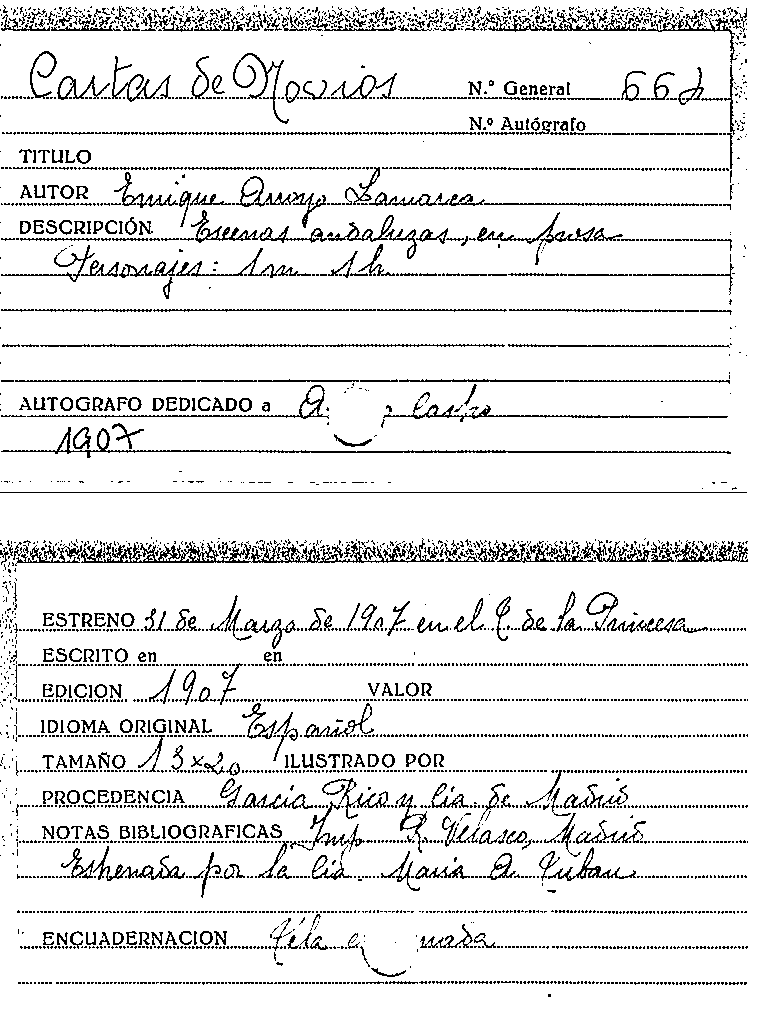 Cartas de Novios N.º General 662
N.º Autógrafo
TITULO
AUTOR Enrique Arroyo Lamarca
DESCRIPCIÓN Escenas andaluzas, en prosa
Personajes: 1m 1h
AUTOGRAFO DEDICADO a Castro
1907
ESTRENO 31 de Marzo de 1907 en el T. de la Princesa
ESCRITO en en
EDICION 1907 VALOR
IDIOMA ORIGINAL Español
TAMAÑO 13x20 ILUSTRADO POR
PROCEDENCIA García Rico y Cía. de Madrid
NOTAS BIBLIOGRAFICAS Imp R. Velasco, Madrid
Estrenada por la Cía. María A. Tubau
ENCUADERNACION Tela